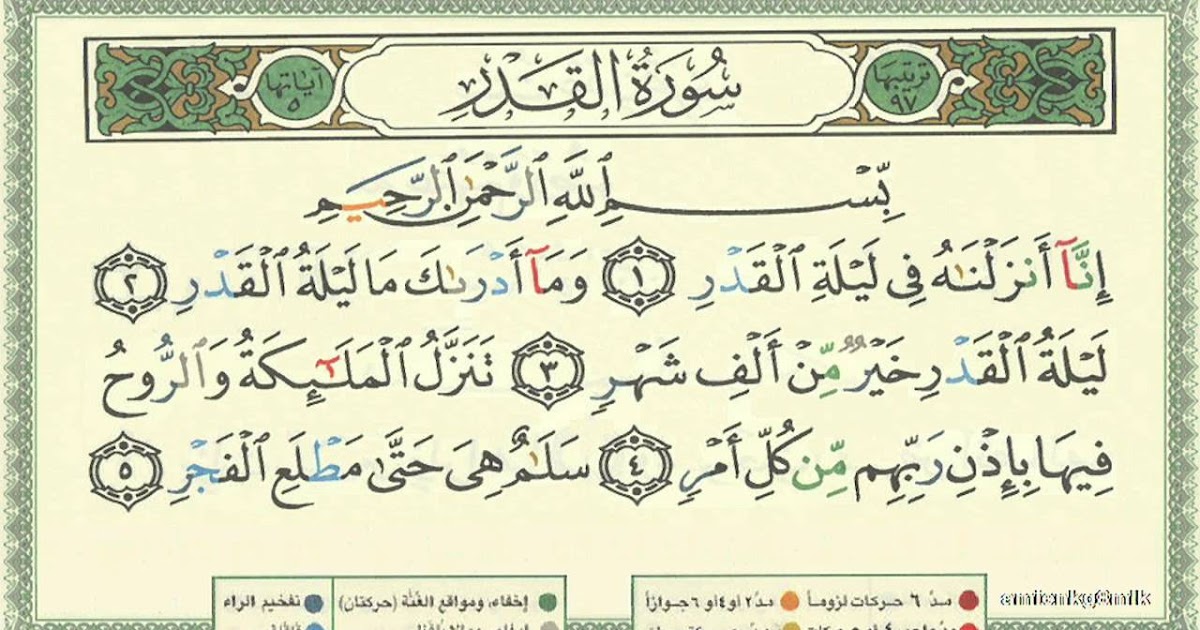 ترتيبها ٩٧ سُورَةُ القَدْرِ آياتها ٥
بِّسْمِ ٱللَّهِ ٱلرَّحْمَٰنِ ٱلرَّحِيمِ
إِنَّآ أَنزَلْنَٰهُ فِى لَيْلَةِ ٱلْقَدْرِ ١ وَمَآ أَدْرَىٰكَ مَا لَيْلَةُ ٱلْقَدْرِ ٢
لَيْلَةُ ٱلْقَدْرِ خَيْرٌ مِّنْ أَلْفِ شَهْرٍ ٣ تَنَزَّلُ ٱلْمَلَٰٓئِكَةُ وَٱلرُّوحُ
فِيهَا بِإِذْنِ رَبِّهِم مِّن كُلِّ أَمْرٍ ٤ سَلَٰمٌ هِىَ حَتَّىٰ مَطْلَعِ ٱلْفَجْرِ ٥
مدّ ٦ حركات لزوماً مدّ ٢ أو ٤ أو ٦ جوازاً
إخفاء، ومواقع الغُنَّة (حركتان) تفخيم الراء